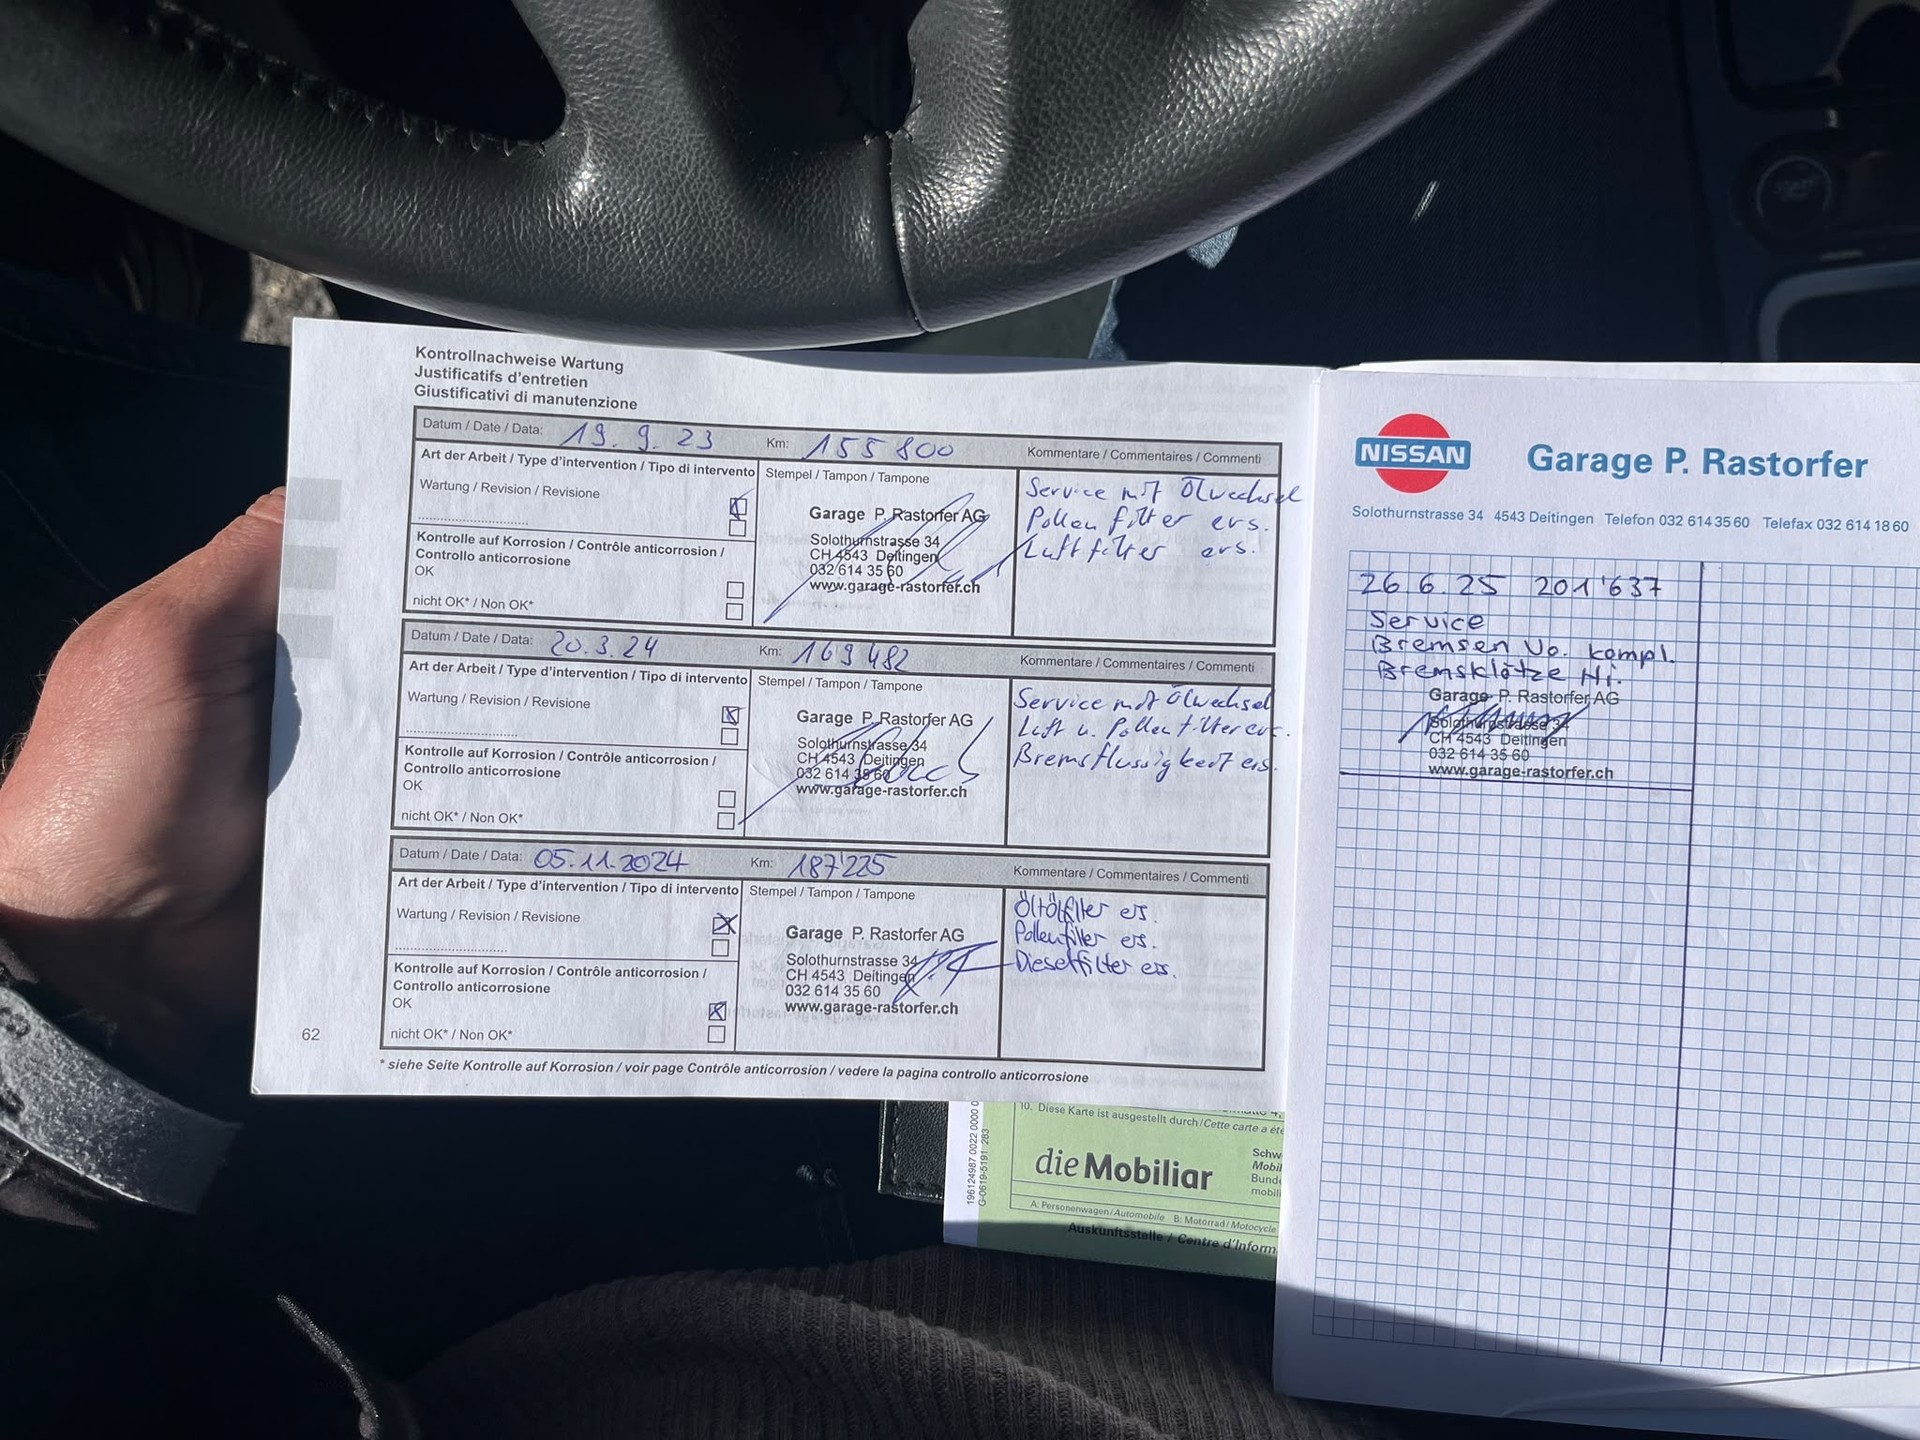 Kontrollnachweise Wartung
Justificatifs d'entretien
Giustificativi di manutenzione
Datum / Date / Data: 19. 9. 23 Km: 155 800 Kommentare / Commentaires / Commenti
Art der Arbeit / Type d'intervention / Tipo di intervento
Stempel / Tampon / Tampone
Wartung / Revision / Revisione
Kontrolle auf Korrosion / Contrôle anticorrosion /
Controllo anticorrosione
OK
nicht OK* / Non OK*
Garage P. Rastorfer AG
Solothurnstrasse 34
CH 4543 Deitingen
032 614 35 60
www.garage-rastorfer.ch
Service mit Ölwechsel
Pollenfilter ers.
Luftfilter ers.
Datum / Date / Data: 20.3.24 Km: 169 482 Kommentare / Commentaires / Commenti
Art der Arbeit / Type d'intervention / Tipo di intervento
Stempel / Tampon / Tampone
Wartung / Revision / Revisione
Kontrolle auf Korrosion / Contrôle anticorrosion /
Controllo anticorrosione
OK
nicht OK* / Non OK*
Garage P. Rastorfer AG
Solothurnstrasse 34
CH 4543 Deitingen
032 614 35 60
www.garage-rastorfer.ch
Service mit Ölwechsel
Luft u. Pollenfilter ers.
Bremsflussigkeit ers.
Datum / Date / Data: 05.11.2024 Km: 187'225 Kommentare / Commentaires / Commenti
Art der Arbeit / Type d'intervention / Tipo di intervento
Stempel / Tampon / Tampone
Wartung / Revision / Revisione
Kontrolle auf Korrosion / Contrôle anticorrosion /
Controllo anticorrosione
OK
nicht OK* / Non OK*
Garage P. Rastorfer AG
Solothurnstrasse 34
CH 4543 Deitingen
032 614 35 60
www.garage-rastorfer.ch
Öl+Ölfilter ers.
Pollenfilter ers.
Dieselfilter ers.
62
* siehe Seite Kontrolle auf Korrosion / voir page Contrôle anticorrosion / vedere la pagina controllo anticorrosione
NISSAN
Garage P. Rastorfer
Solothurnstrasse 34 4543 Deitingen Telefon 032 614 35 60 Telefax 032 614 18 60
26. 6. 25 201'637
Service
Bremsen Vo. kompl.
Bremsklötze Hi.
Garage P. Rastorfer AG
Solothurnstrasse 34
CH 4543 Deitingen
032 614 35 60
www.garage-rastorfer.ch
10. Diese Karte ist ausgestellt durch/Cette carte a été
die Mobiliar
Schw
Mobil
Bund
mobili
A: Personenwagen/Automobile B: Motorrad/Motocycle
Auskunftsstelle / Centre d'Inform
196124987 0022 0000 0
G-0619-5191 283